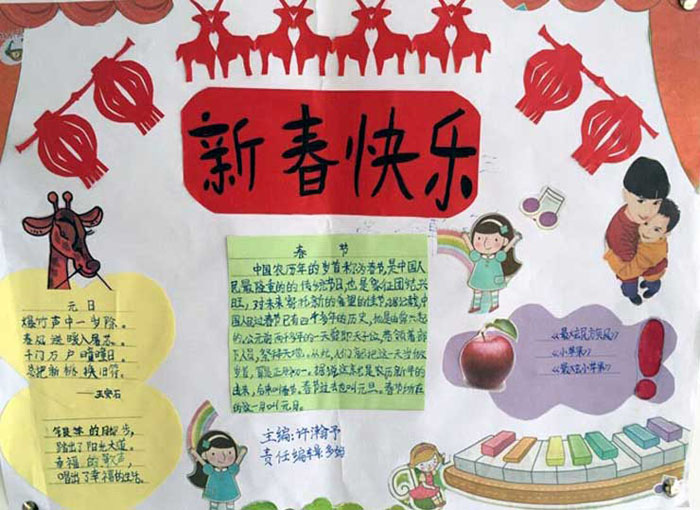 新春快乐
春节
中国农历年的岁首称为春节,是中国人
民最隆重的的传统节日,也是象征团结兴
旺,对未来寄托新的希望的佳节,据记载,中
国人民过春节已有四千多年的历史,
的,公元前两千多年的一天,舜即天子位,带领着部
下人员,祭拜天地。从此,人们就把这一天当做
岁首,
春节过去也叫元旦。春节所在
的这一月叫元月。
元日
爆竹声中一岁除。
春风送暖入屠苏。
千门万户曈曈日。
总把新桃换旧符。
——王安石
的脚步,
踏出了阳光大道。
幸福的歌声,
唱出了幸福的生活。
主编:许瀚予
责任编辑:
《最炫民族风》
《小苹果》
《最炫小苹果》